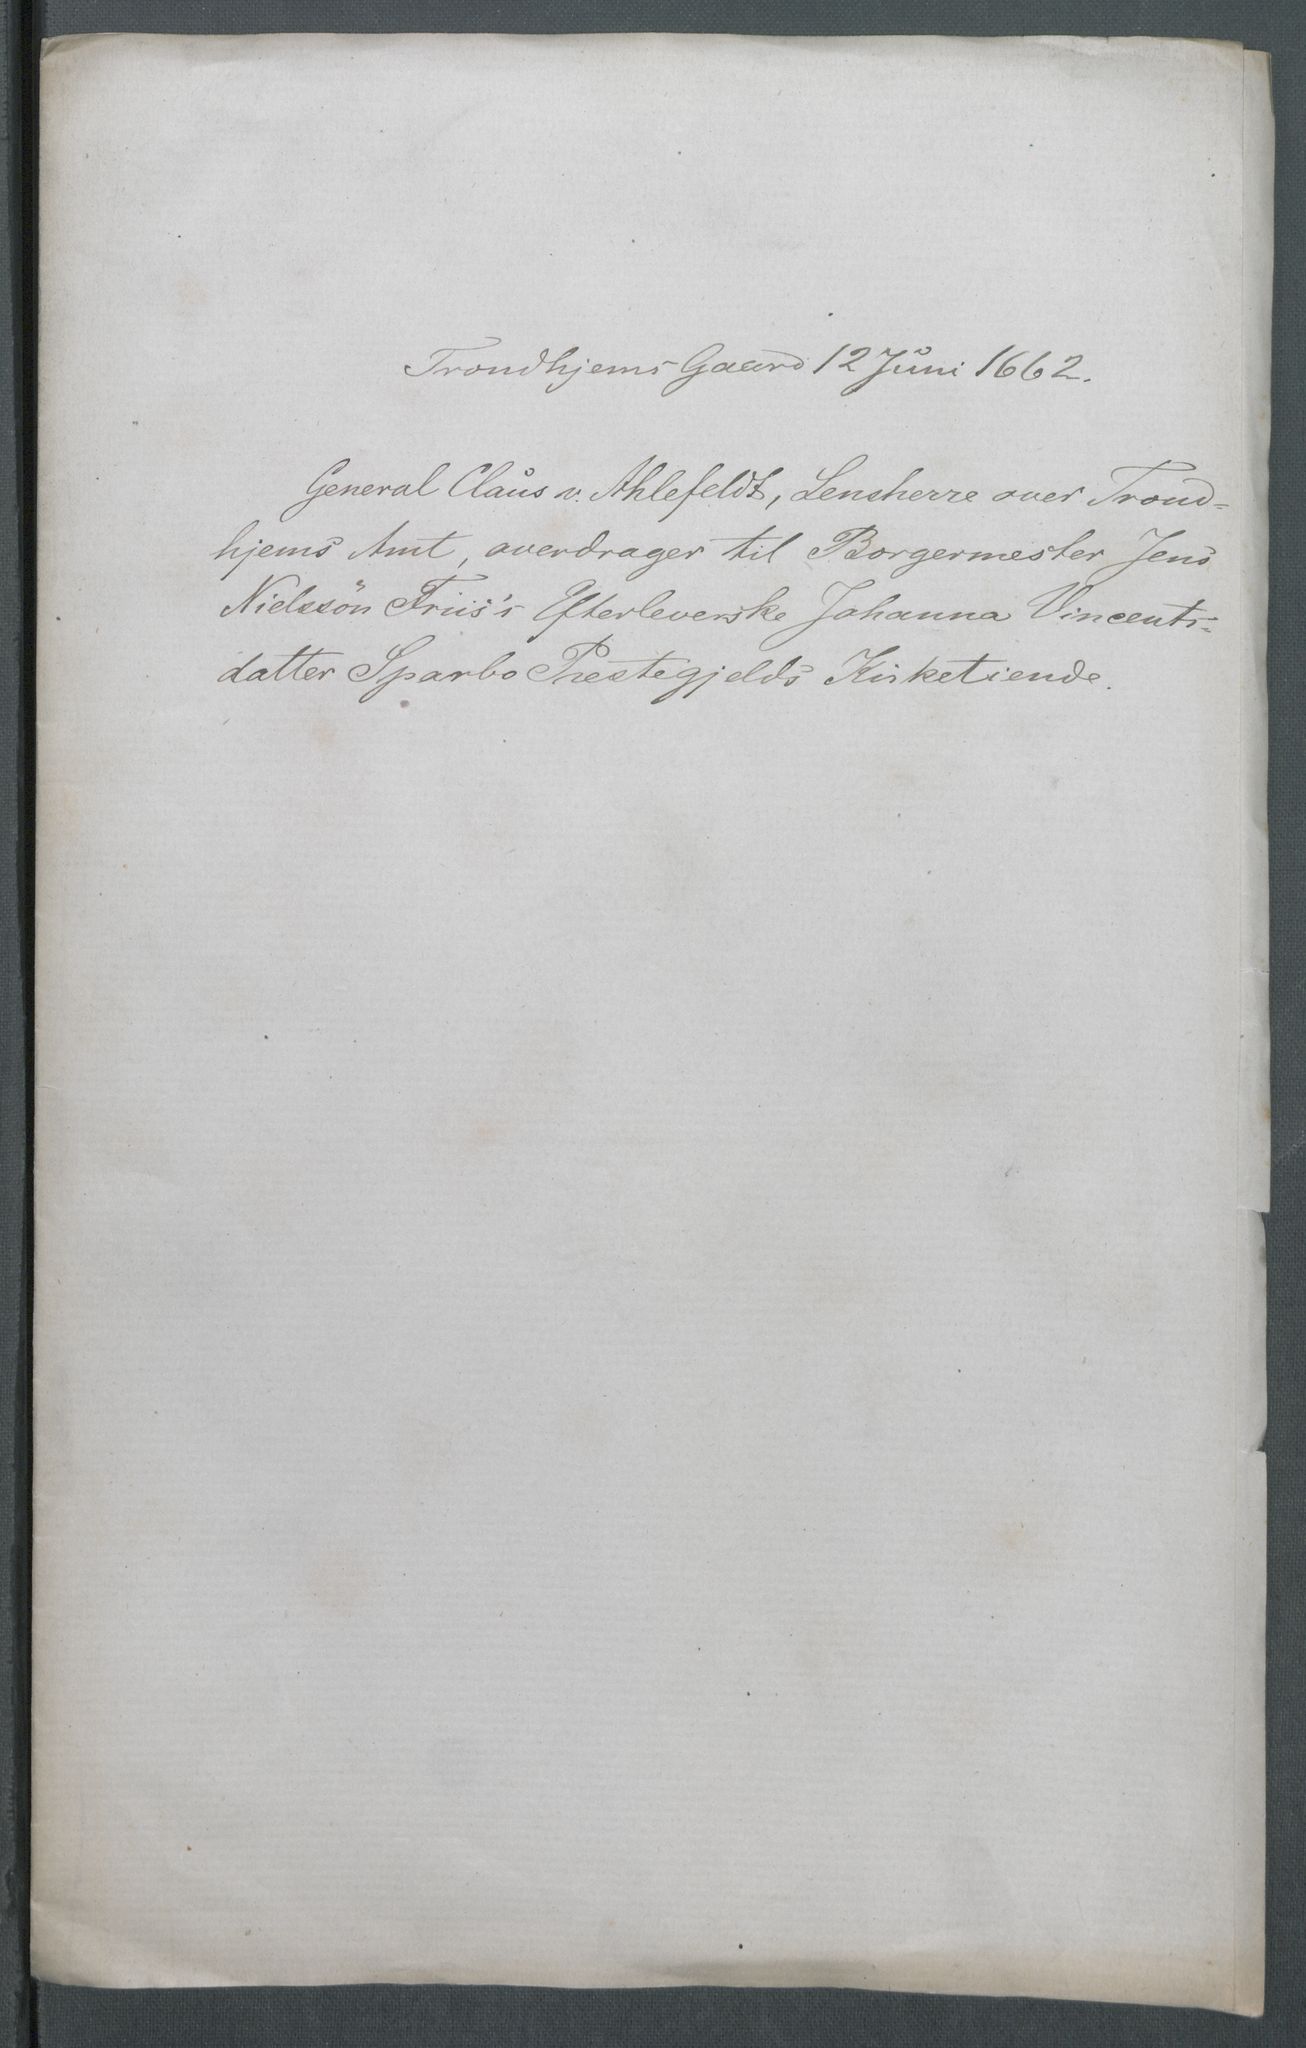 Trondhjems Gaard 12 Juni 1662.
General Claus v. Ahlefeldt, Lensherre over Trond-
hjems Amt, overdrager til Borgermester Jens
Nielssön Friis's Efterleverske Johanna Vincents-
datter Sparbo Prestegjelds Kirketiende.